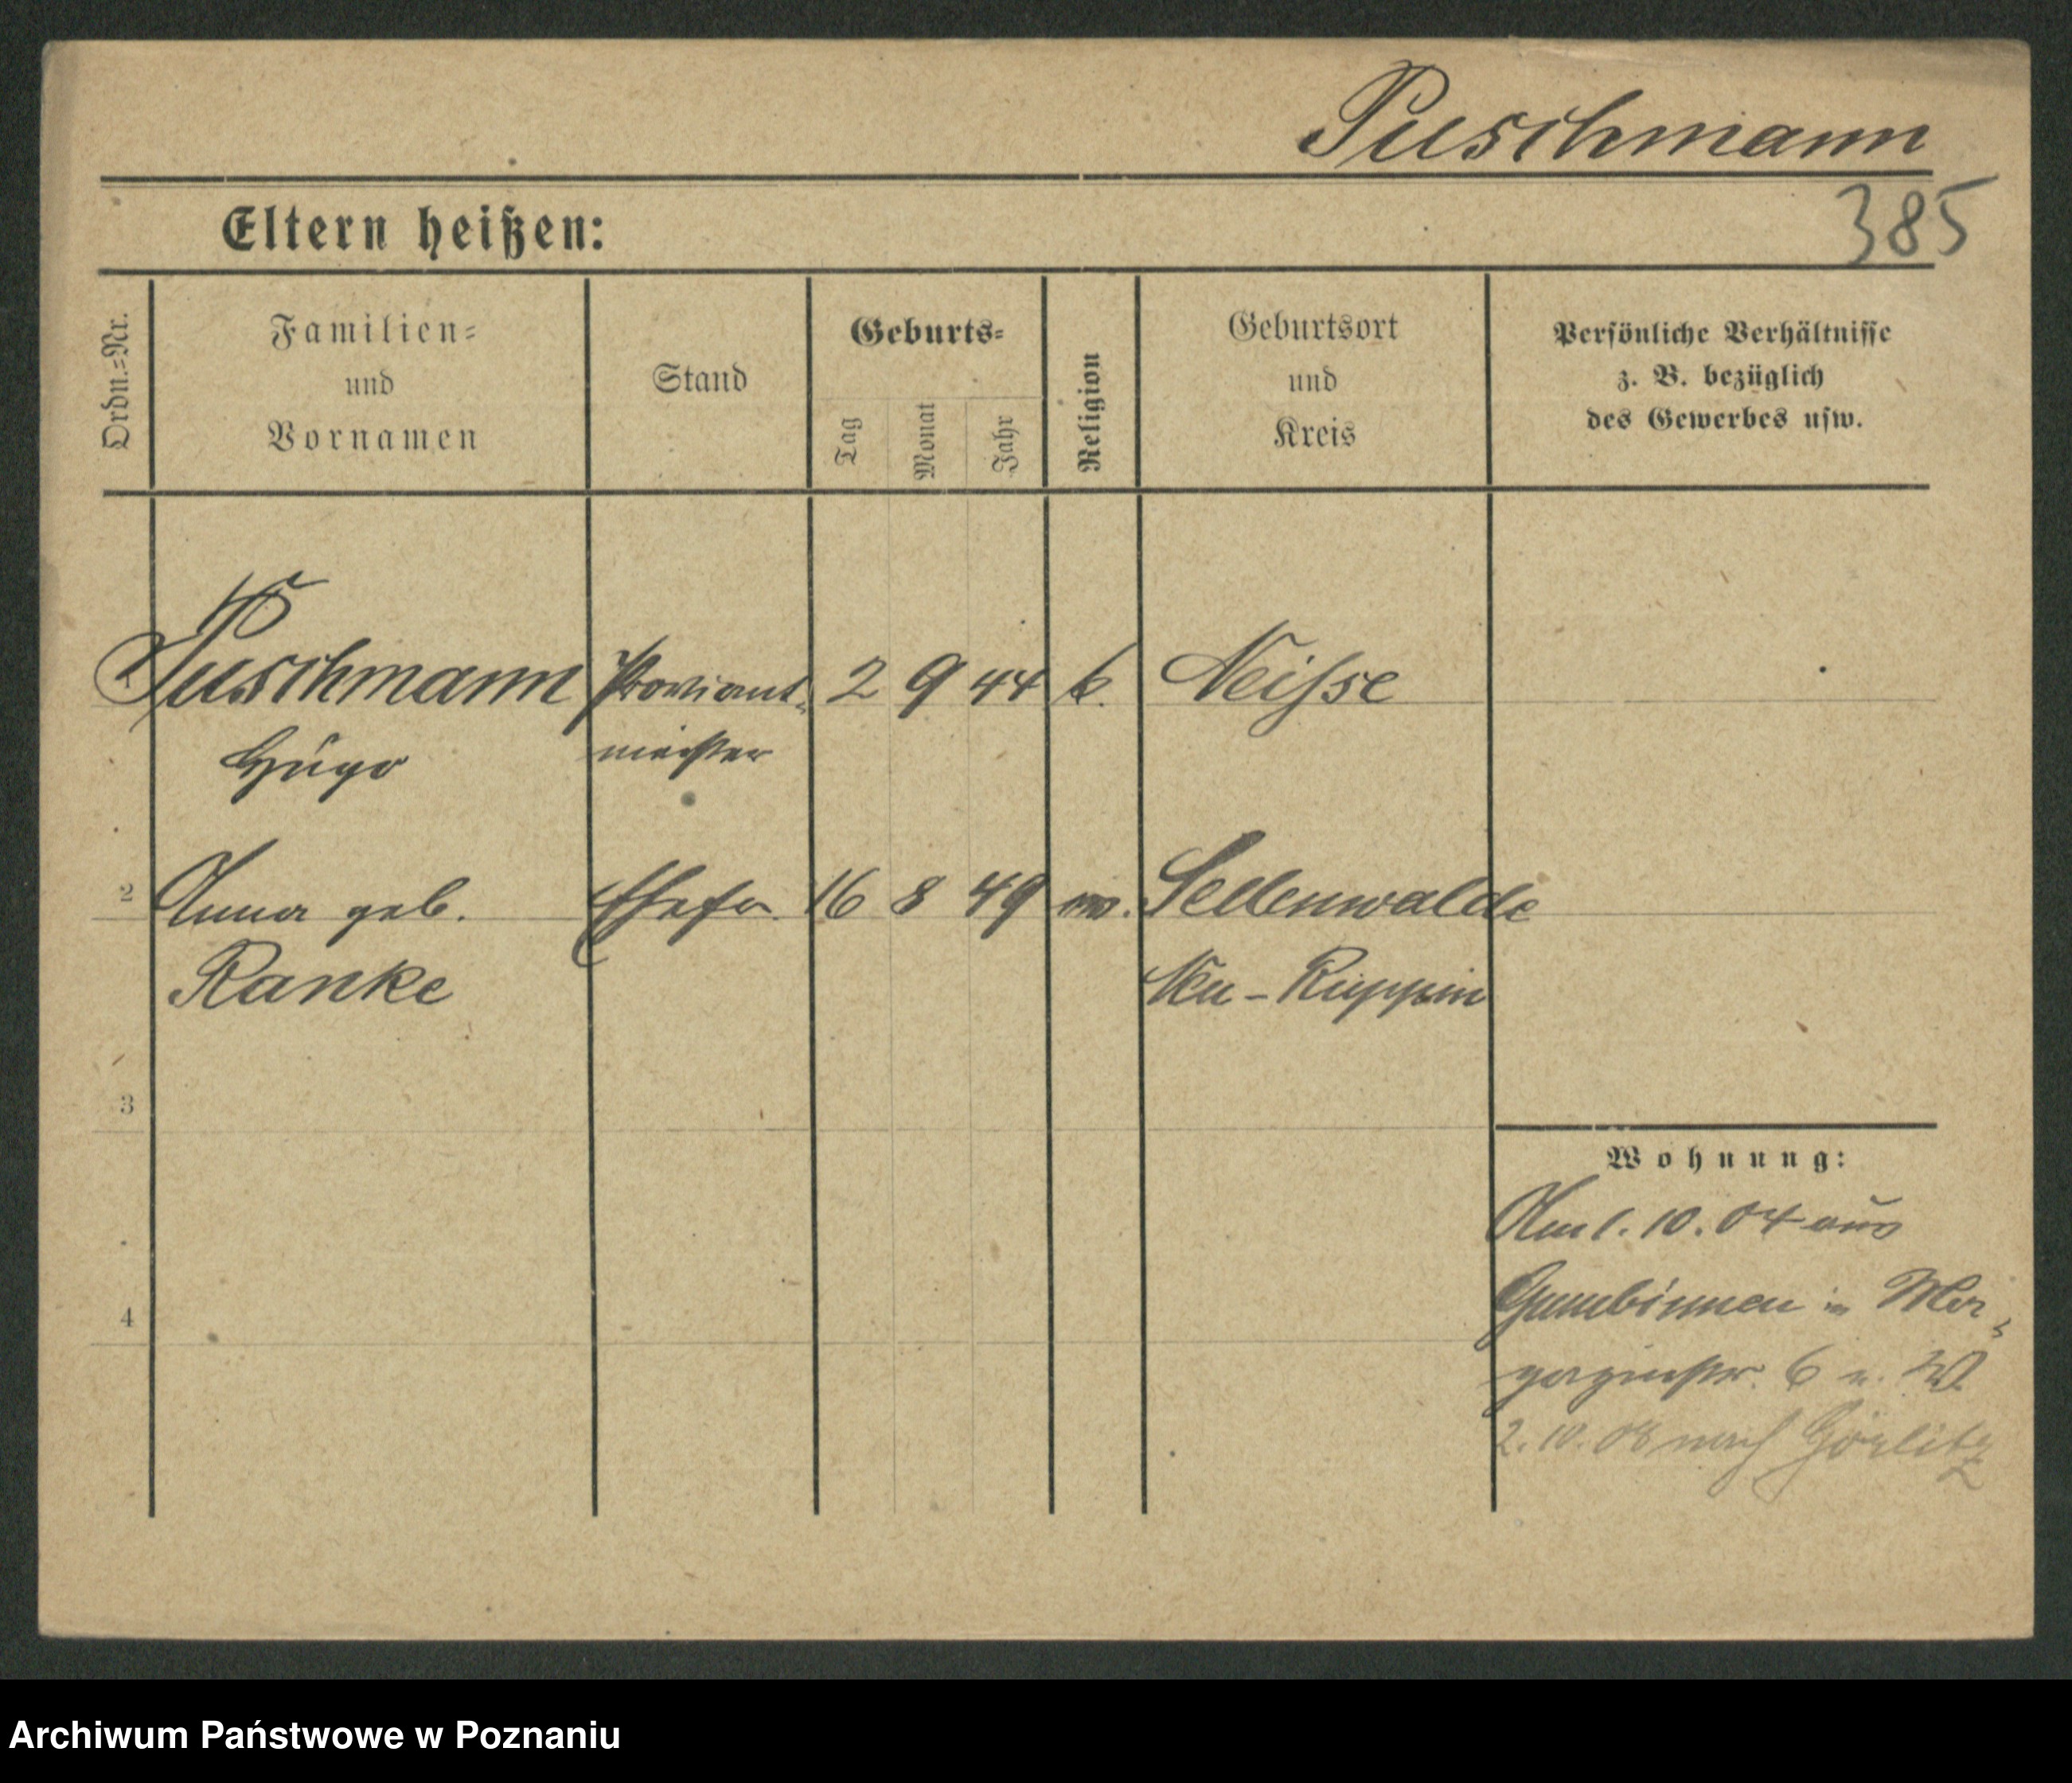 Puschmann
385
Eltern heißen:
Ordn.=Nr.
Familien=
und
Vornamen
Stand
Geburts=
Tag
Monat
Jahr
Religion
Geburtsort
und
Kreis
Persönliche Verhältnisse
z. B. bezüglich
des Gewerbes usw.
Puschmann Proviant- 2 9 44 Neisse
Hugo meister
2 Anna geb. Ehefr. 16 8 49 ev. Sellenwalde
Ranke Neu-Ruppin
3
Wohnung:
Am 1. 10. 04 aus
4
Gumbinnen in Ma-
gazinstr. 6 z. W.
2. 10. 08 nach Görlitz
Archiwum Państwowe w Poznaniu